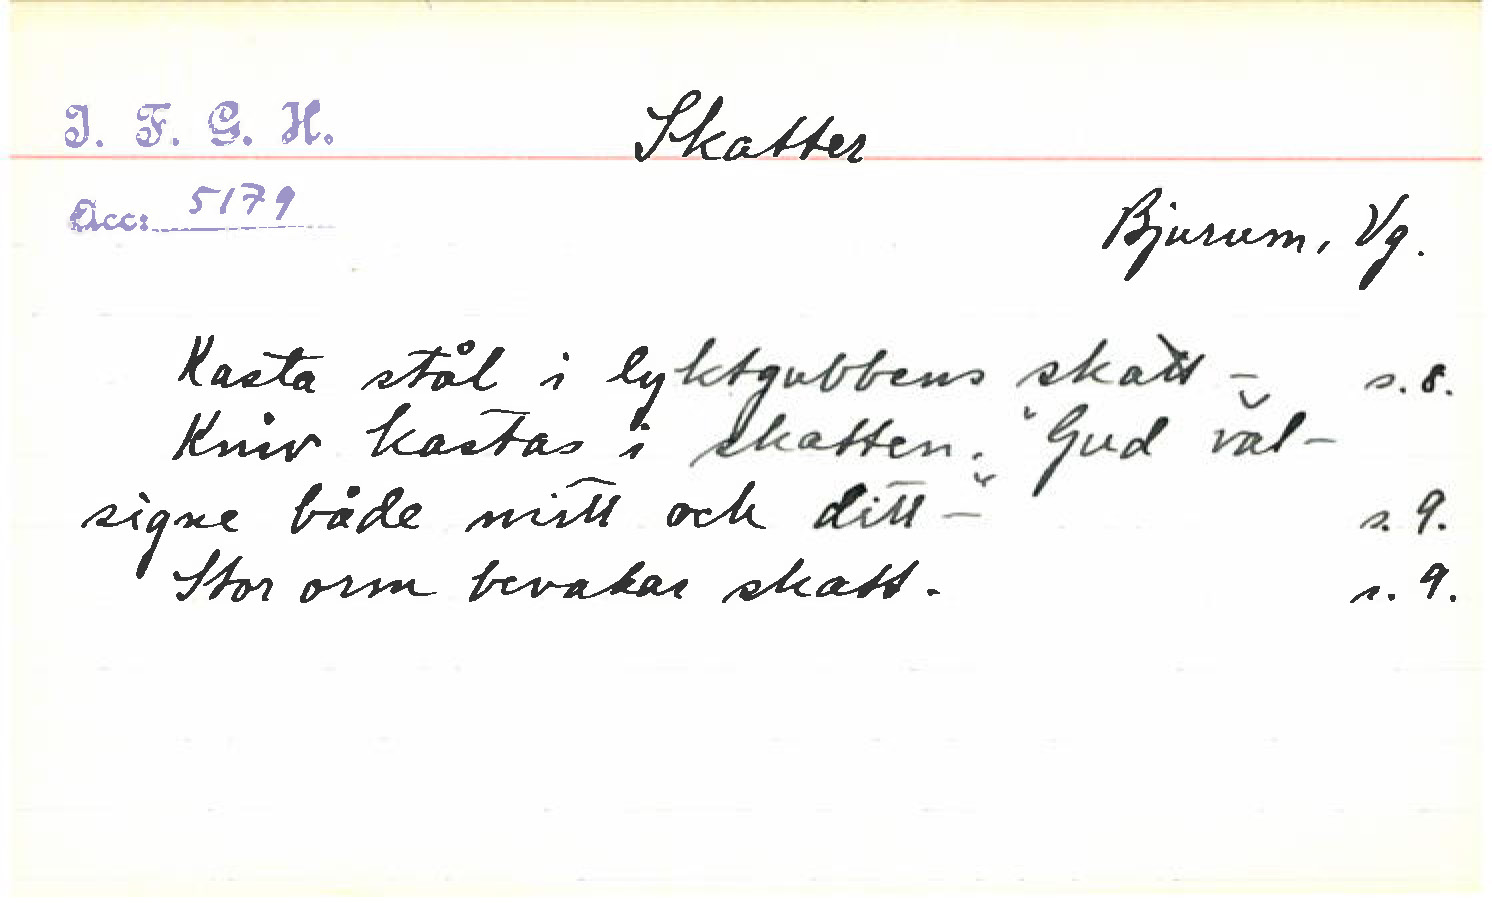 I. F. G. H.
Skatter
Acc: 5179
Bjurum, Vg.
Kasta stål i lyktgubbens skatt – s. 8.
Kniv kastas i skatten. "Gud väl-
signe både mitt och ditt –" s. 9.
Stor orm bevakar skatt. s. 9.